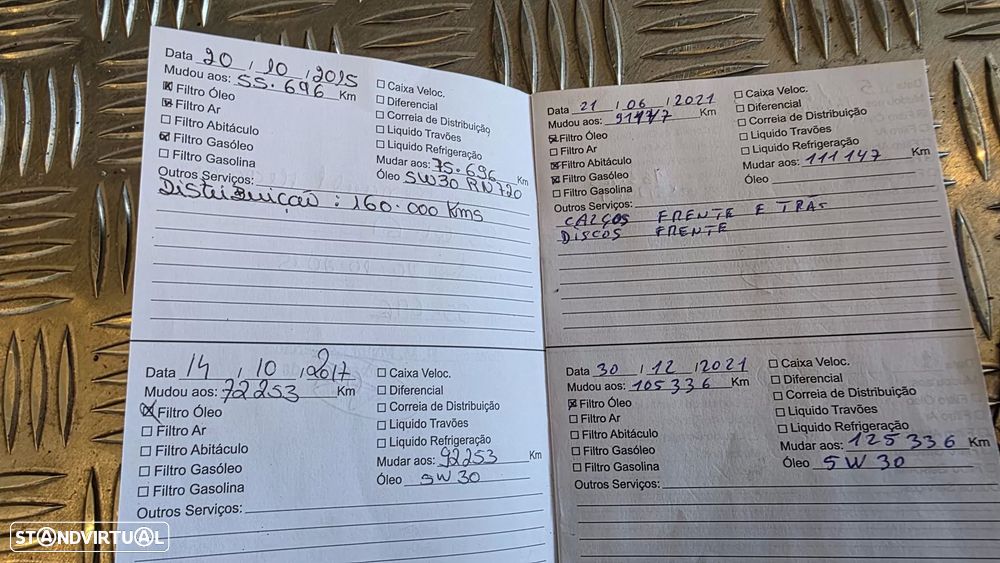 Data 20 / 10 / 2015
Mudou aos: 55.696 Km
Filtro Óleo
Filtro Ar
Filtro Abitáculo
Filtro Gasóleo
Filtro Gasolina
Caixa Veloc.
Diferencial
Correia de Distribuição
Liquido Travões
Liquido Refrigeração
Mudar aos: 75.696 Km
Óleo 5W30 RN720
Outros Serviços:
Distribuição : 160.000 Kms
Data 14 / 10 / 2017
Mudou aos: 72253 Km
Filtro Óleo
Filtro Ar
Filtro Abitáculo
Filtro Gasóleo
Filtro Gasolina
Caixa Veloc.
Diferencial
Correia de Distribuição
Liquido Travões
Liquido Refrigeração
Mudar aos: 92253 Km
Óleo 5W30
Outros Serviços:
Data 21 / 06 / 2021
Mudou aos: 91147 Km
Filtro Óleo
Filtro Ar
Filtro Abitáculo
Filtro Gasóleo
Filtro Gasolina
Caixa Veloc.
Diferencial
Correia de Distribuição
Liquido Travões
Liquido Refrigeração
Mudar aos: 111147 Km
Óleo
Outros Serviços:
CALÇOS FRENTE E TRAS
DISCOS FRENTE
Data 30 / 12 / 2021
Mudou aos: 105336 Km
Filtro Óleo
Filtro Ar
Filtro Abitáculo
Filtro Gasóleo
Filtro Gasolina
Caixa Veloc.
Diferencial
Correia de Distribuição
Liquido Travões
Liquido Refrigeração
Mudar aos: 125336 Km
Óleo 5W30
Outros Serviços:
STANDVIRTUAL